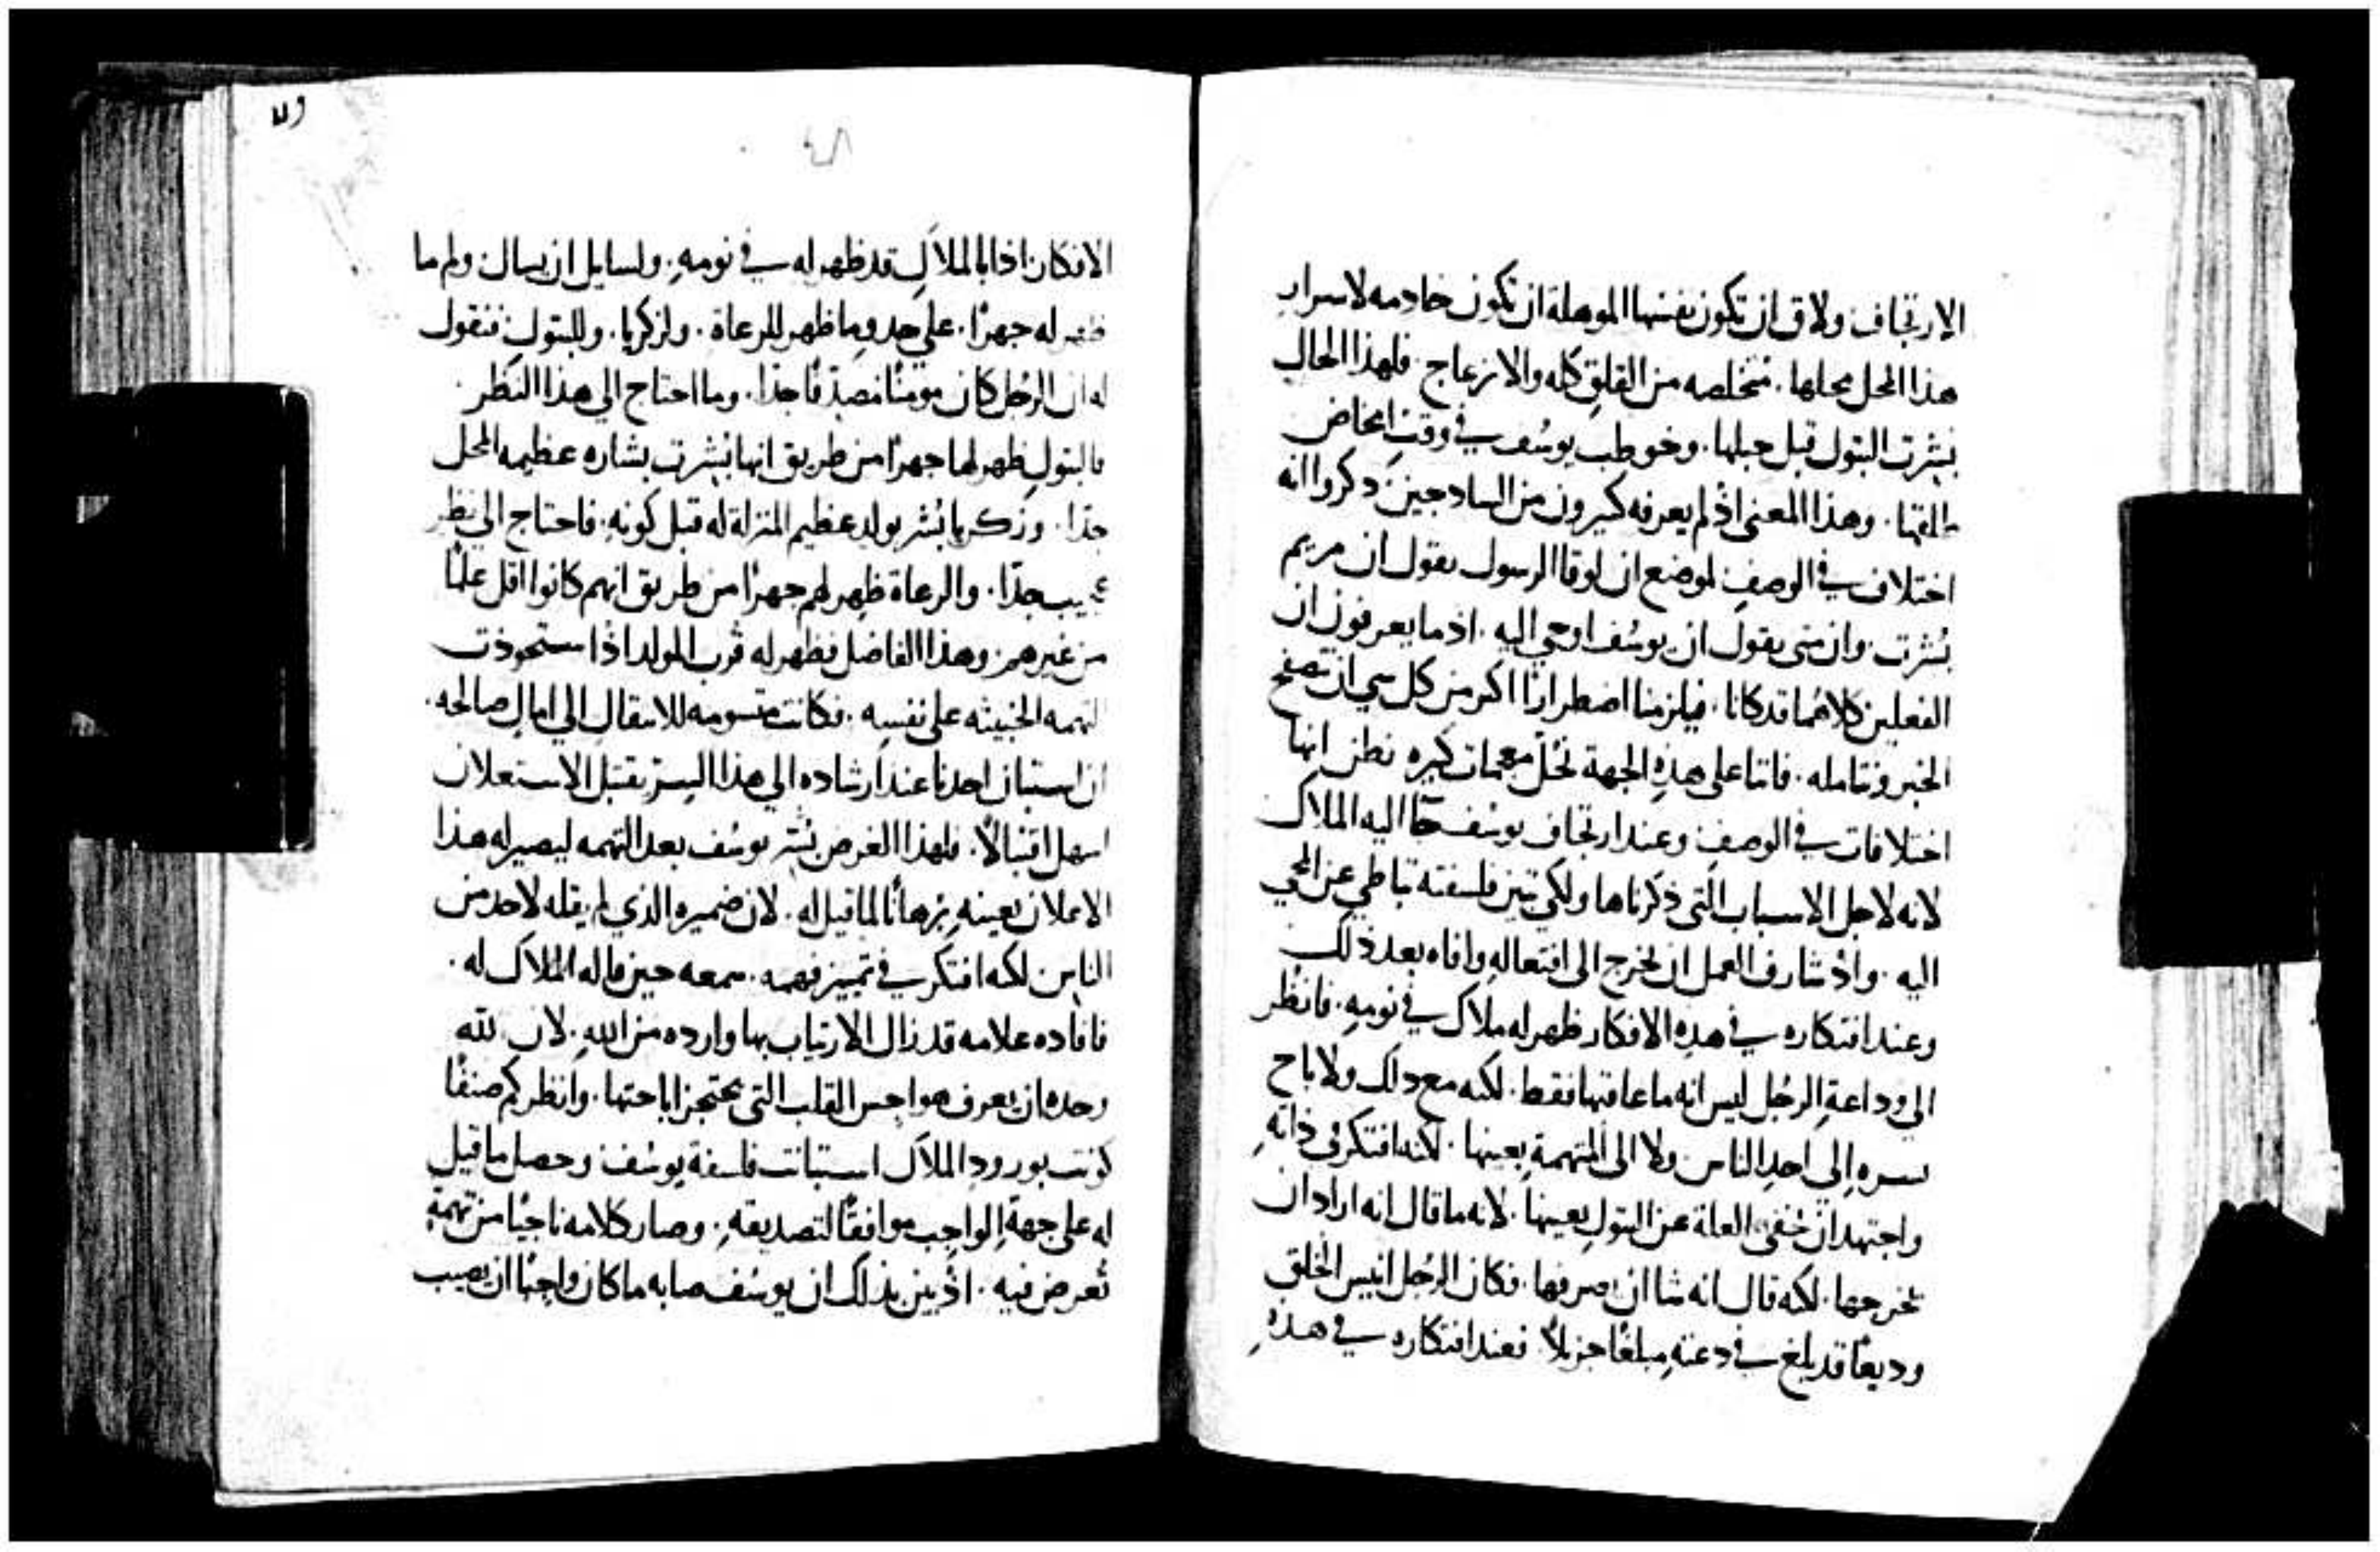 الارتجاف ولاق ان تكون نفسها الموهلة ان تكون خادمه لاسرار
هذا المحل محلها. متخلصه من القلق كله والانزعاج. فلهذا الحال
بشرت البتول قبل حبلها. وخوطب يوسف في وقت امخاض
طلقها. وهذا المعنى اذ لم يعرفه كثيرون من السادجين دكروا انه
اختلاف في الوصف لموضع ان لوقا الرسول يقول ان مريم
بُشرت. وان متى يقول ان يوسف اوحي اليه. اذ ما يعرفون ان
الفعلين كلاهُما قد كانا. فيلزمنا اضطرارًا اكثر من كل شي ان نتصفح
الخبر ونتامله. فاننا على هذهِ الجهة نحُلّ معجمات كثيره نظن انها
اختلافات في الوصف وعند ارتجاف يوسُف جآ اليه الملاك
لانه لاجل الاسباب التي ذكرناها ولكي تبين فلسفته تباطى عن المجي
اليه. واذ شارف العمل ان يخرج الى افتعالهِ وافاه بعد ذلك
وعند افتكاره في هذهِ الافكار ظهر له ملاك في نومهِ. فانظر
الى وداعةِ الرجُل ليس انه ما عاقبها فقط. لكنه مع دلك ولا باح
بسرهِ إلى احدِ الناس ولا الى المتهمةِ بعينها. لكنه افتكر في ذاتهِ
واجتهد ان يُخفى العلة عن البتولِ بعينها. لانه ما قال انه اراد ان
يخرجها. لكنه قال انه شا ان يصرفها. فكان الرجُل انيس الخلق
وديعًا قد بلغ في دعتهِ مبلغًا جزيلاً. فعند افتكاره في هذهِ
٤٨
الافكار اذا بالملاكِ قد ظهر له في نومهِ. ولسايل ان يسال ولم ما
ظهر له جهرًا. على حدو ما ظهر للرعاة. ولزكريا. وللبتول فنقول
له ان الرجُل كان مومنًا مُصدّقًا جدًا. وما احتاج الي هذا النظر.
فالبتول ظهر لها جهرًا من طريق انها بُشرت بشاره عظيمه المحل
جدا. وزكريا بُشر بولد عظيم المنزلة له قبل كونهِ. فاحتاج الي نظر
عجيب جدًا. والرعاة ظهر لهم جهرًا من طريق انهم كانوا اقل علمًا
من غيرهم. وهذا الفاضل فظهر له قرب المولد اذا ستحوذت
التهمه الخبيثه على نفسِه. فكانت متسومه للانتقال الي امال صالحه.
ان استبان احدنا عند ارشاده الي هذا السرّ يقتبل الاستعلان
اسهل اقتبالاً. فلهذا الغرض بُشر يوسُف بعد التهمه ليصير له هذا
الاعلان بعينهِ بُرهانًا لما قيل له. لان ضميره الذي لم يقله لاحد من
الناس لكنه افتكر في تمييز فهمه. سمعه حين قاله الملاك له.
فافاده علامه قد زال الارتياب بها وارده من اللهِ. لان لله
وحده ان يعرف هواجس القلب التي تحتجز اباحتها. وانظر كم صنفًا
كونت بورودِ الملاك استبانت فلسفة يوسُف وحصل ما قيل
له على جهةِ الواجب موافقًا لتصديقهِ. وصار كلامه ناجيًا من تهمةِ
تُعرض فيه. اذ بين بذلك ان يوسُف صابه ما كان واجبًا ان يصيب